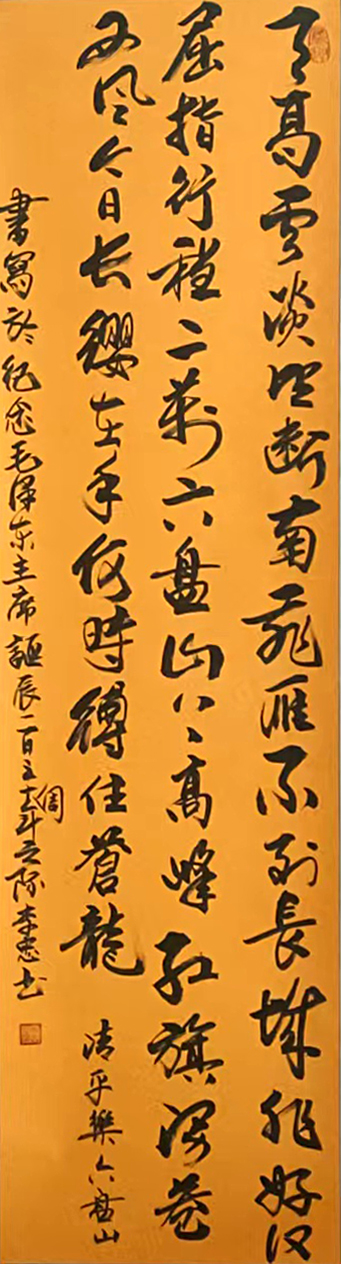 天高雲淡望断南飛雁不到長城非好汉
屈指行程二萬六盘山上高峰红旗漫卷
西风今日长纓在手何時縛住蒼龍
清平樂六盘山
書寫於纪念毛泽东主席誕辰一百周年之际李忠书